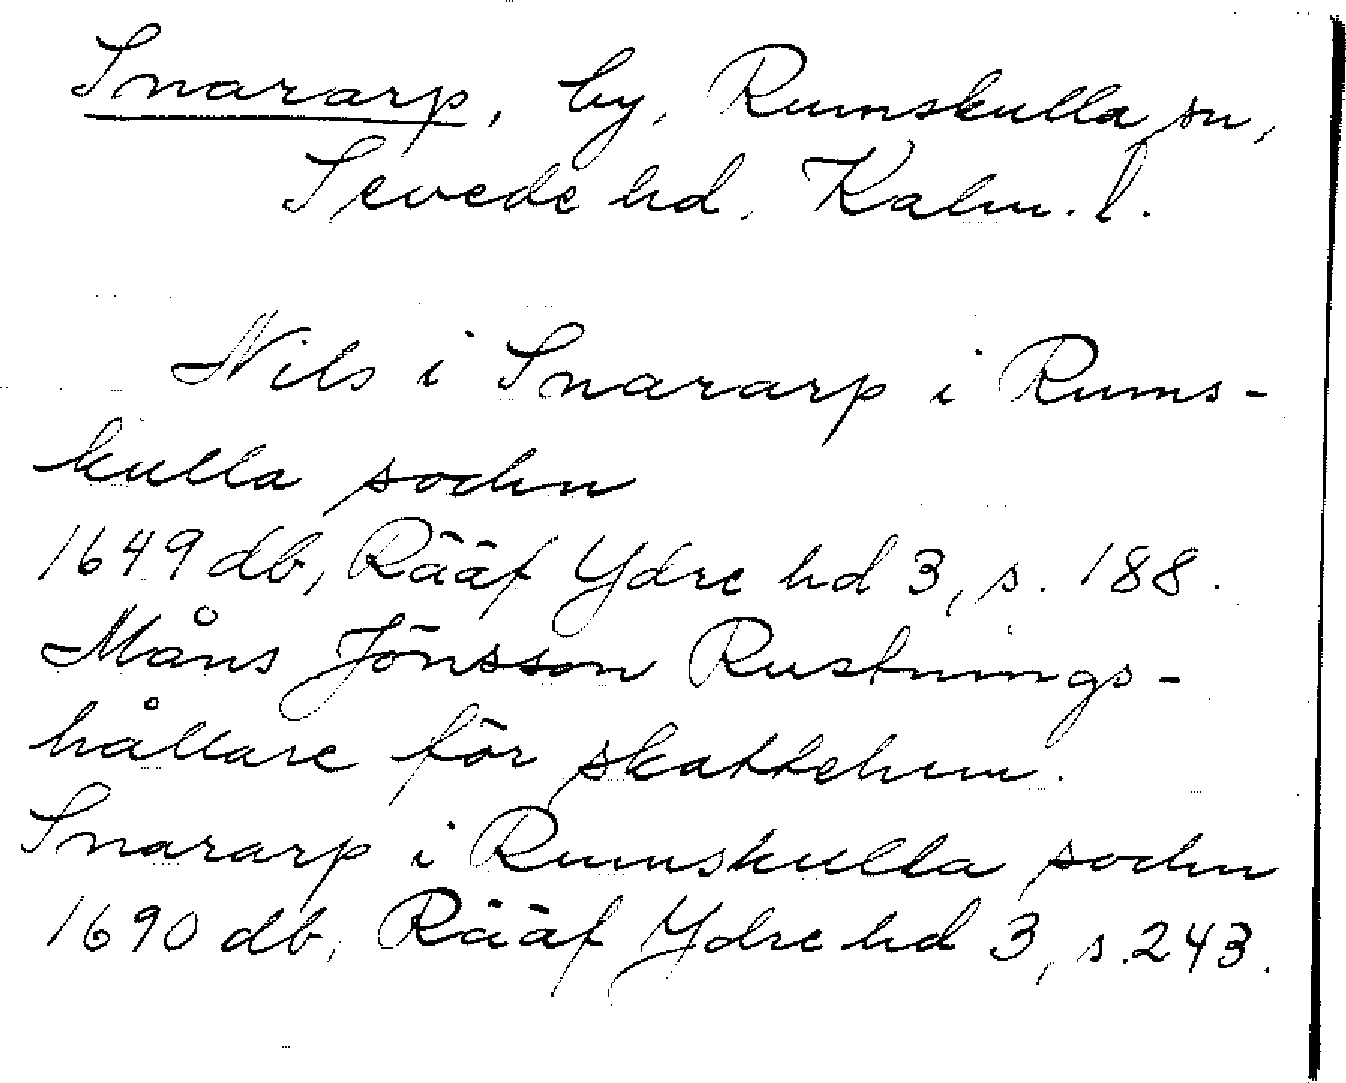 Snararp, by, Rumskulla sn,
Sevede hd. Kalm. l.
Nils i Snararp i Rums-
kulla sochn
1649 db, Rääf Ydre hd 3, s. 188.
Måns Jönsson Rustnings-
hållare för skattehem.
Snararp i Rumskulla sochn
1690 db, Rääf Ydre hd 3, s. 243.